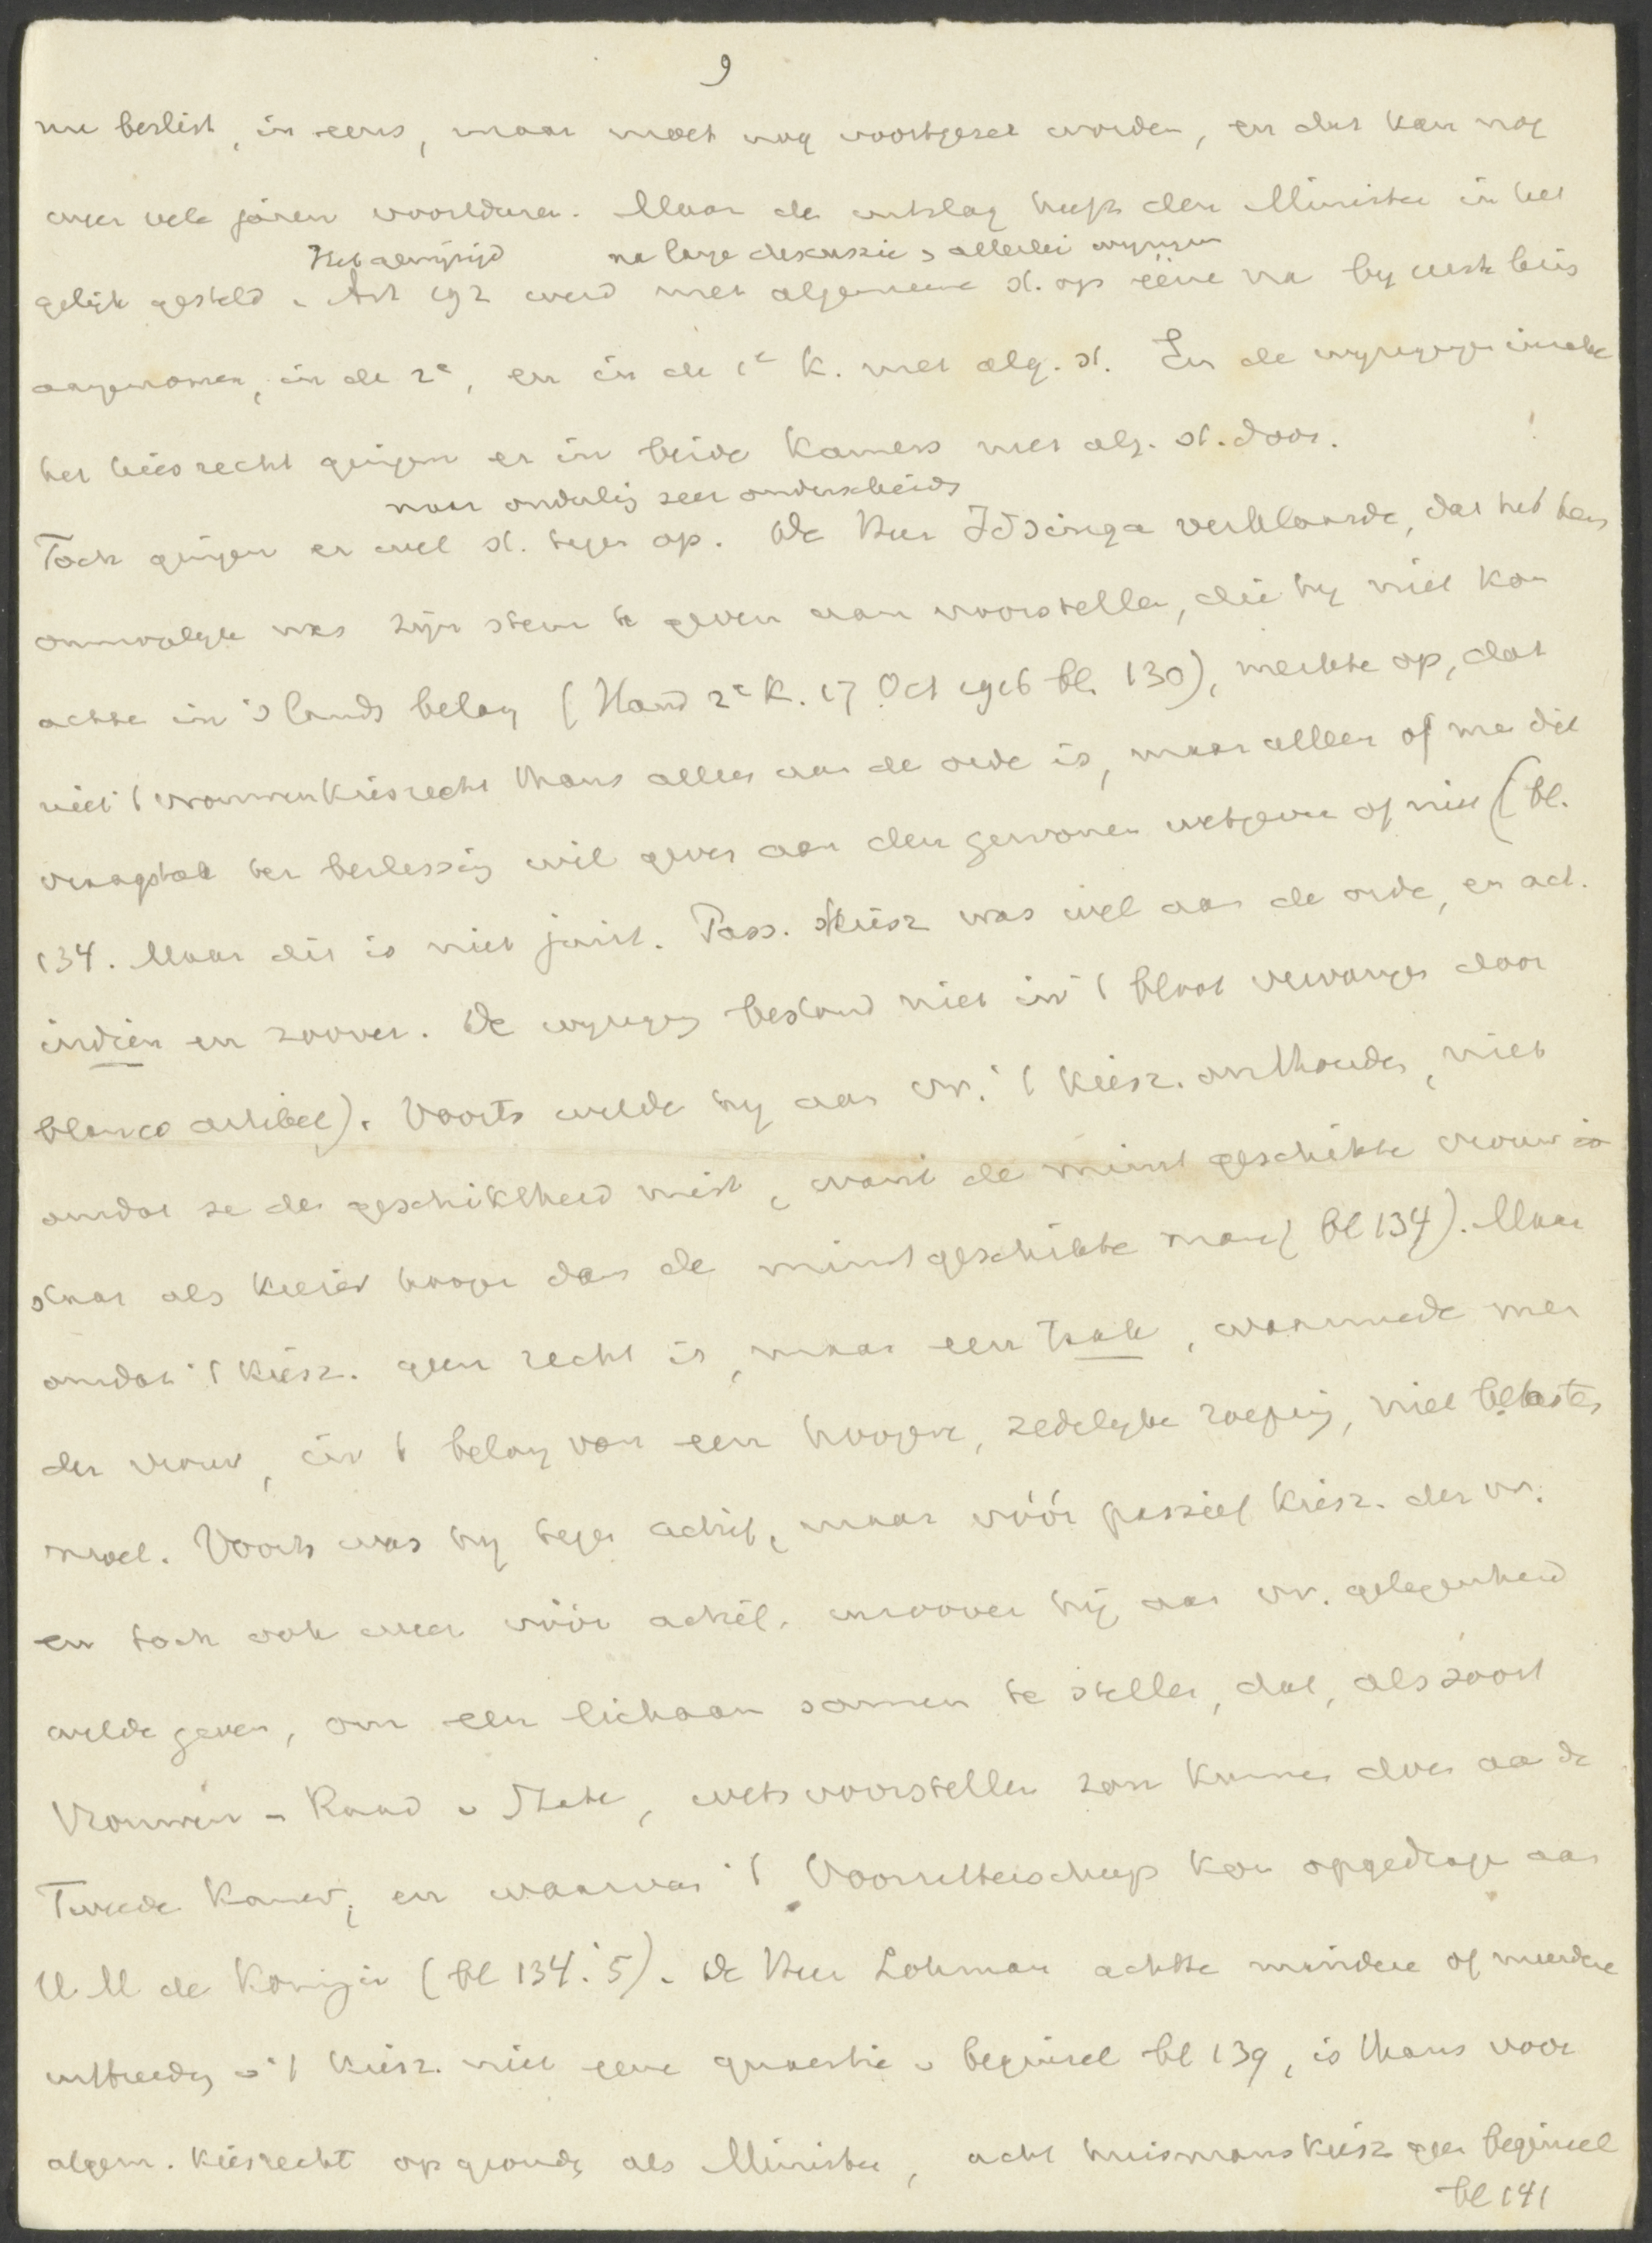 9
nu beslist, in eens, maar moet nog voortgezet worden, en dat kan nog
weer vele jaren voortduren. Maar de uitslag heeft den Minister in het
Het gewijzigd na lange diskussie & allerlei wijzigen
gelijk gesteld. Art 192 werd met algemeene st. op ééne na by
aangenomen, in de 2e, en in de 1e K. met alg. st. En de wyzigingen inzake
het kiesrecht gingen er in beide Kamers met alg. st. door.
maar onderling zeer onderscheide
Toch gingen er wel st. tegen op. De Heer Idsinga verklaarde, dat het hem
onmogelyk was zijn stem te geven aan voorstellen, die hy niet kon
achten in 's lands belang (Hand 2e K. 17 Oct 1916 bl. 130), merkte op, dat
niet 't vrouwenkiesrecht thans alleen aan de orde is, maar alleen of men dit
vraagstuk ter beslissing wil geven aan den gewonen wetgever of niet (bl.
134. Maar dit is niet juist. Pass. kiesr was wel aan de orde, en act.
indien en zoover. De wyziging bestond niet in 't bloot vervangen door
blanco artikel). Voorts wilde hy aan vr. 't kiesr. onthouden, niet
omdat ze de geschiktheid mist, want de minst geschikte vrouw
staat als kiezer hooger dan de minst geschikte man (bl 134). Maar
omdat 't kiesr. geen recht is, maar een taak, waarmede men
der vrouw, in 't belang van een hoogere, zedelyke roeping, niet belasten
moet. Voorts was hy tegen actief, maar vóór passief kiesr. der vr.
en toch ook weer vóór actief. inzoover hij aan vr. gelegenheid
wilde geven, om een lichaam samen te stellen, dat, als soort
Vrouwen-Raad v State, wetsvoorstellen zou kunnen doen aan de
Tweede Kamer, en waarvan 't Voorzitterschap kon opgedragen aan
H.M de Koningin (bl 134.'5). De Heer Lohman achtte mindere of meerdere
uitbreiding v 't kiesr. niet eene quaestie v beginsel bl 139, is thans voor
algem. kiesrecht op gronden als Minister, acht huismanskiesr geen beginsel
bl 141